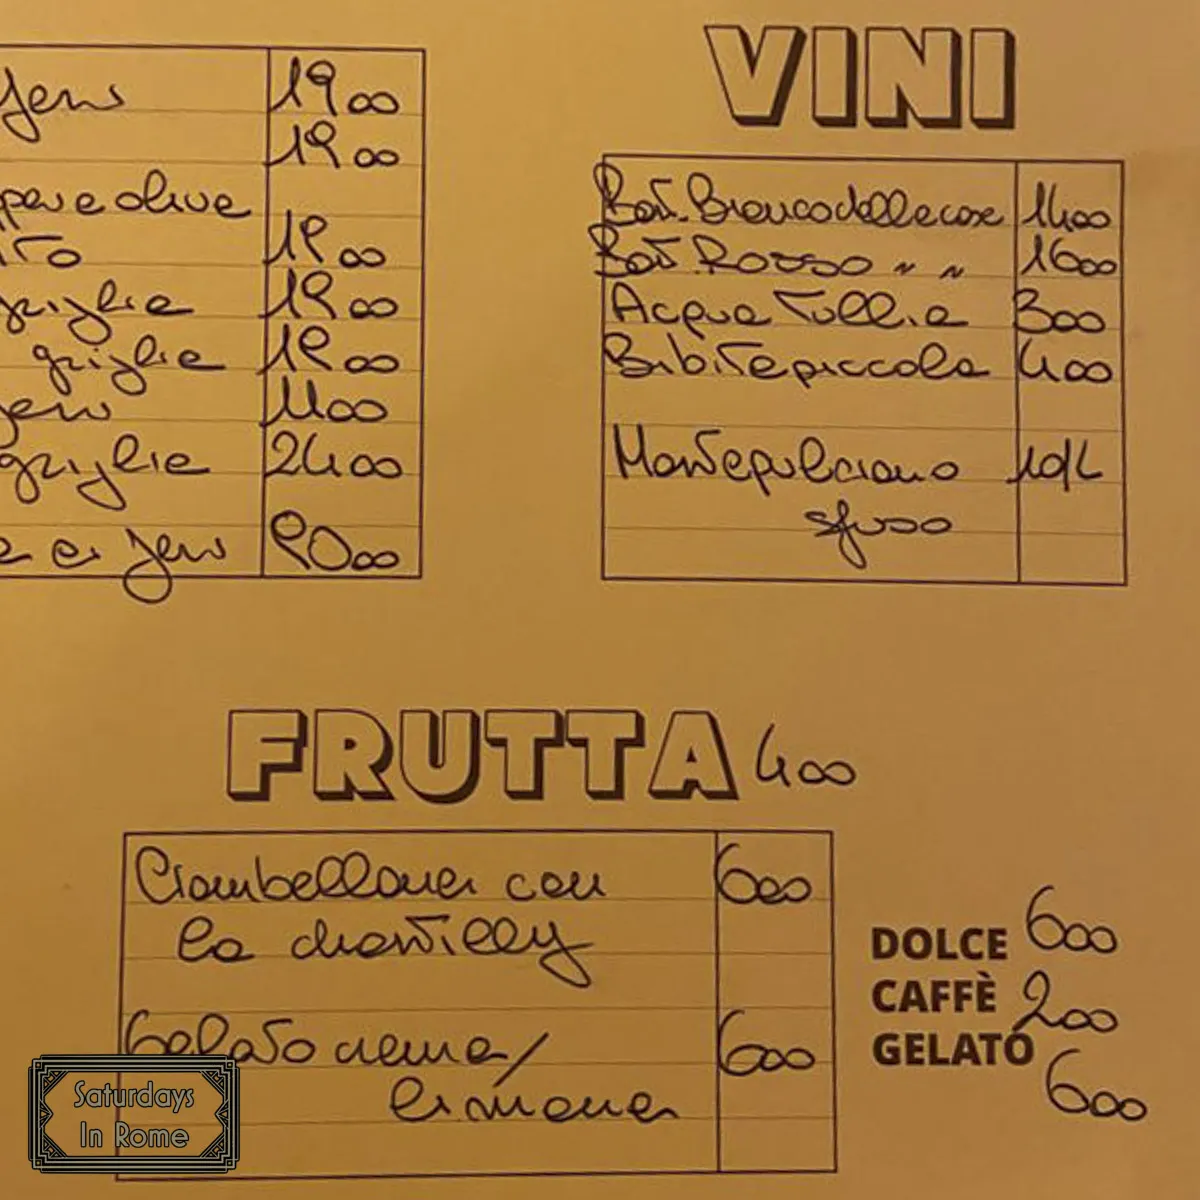 19 00
19 00
e olive
19 00
griglia 19 00
griglia 19 00
11 00
griglia 24 00
20 00
VINI
Bott. Bianco delle case 14 00
Bott. Rosso " " 16 00
Acqua Tullia 3 00
Bibite piccola 4 00
Montepulciano 10/L
sfuso
FRUTTA 4 00
Ciambellone con 6 00
la chantilly
Gelato crema/ 6 00
limone
DOLCE 6 00
CAFFÈ 2 00
GELATO 6 00
Saturdays
In Rome